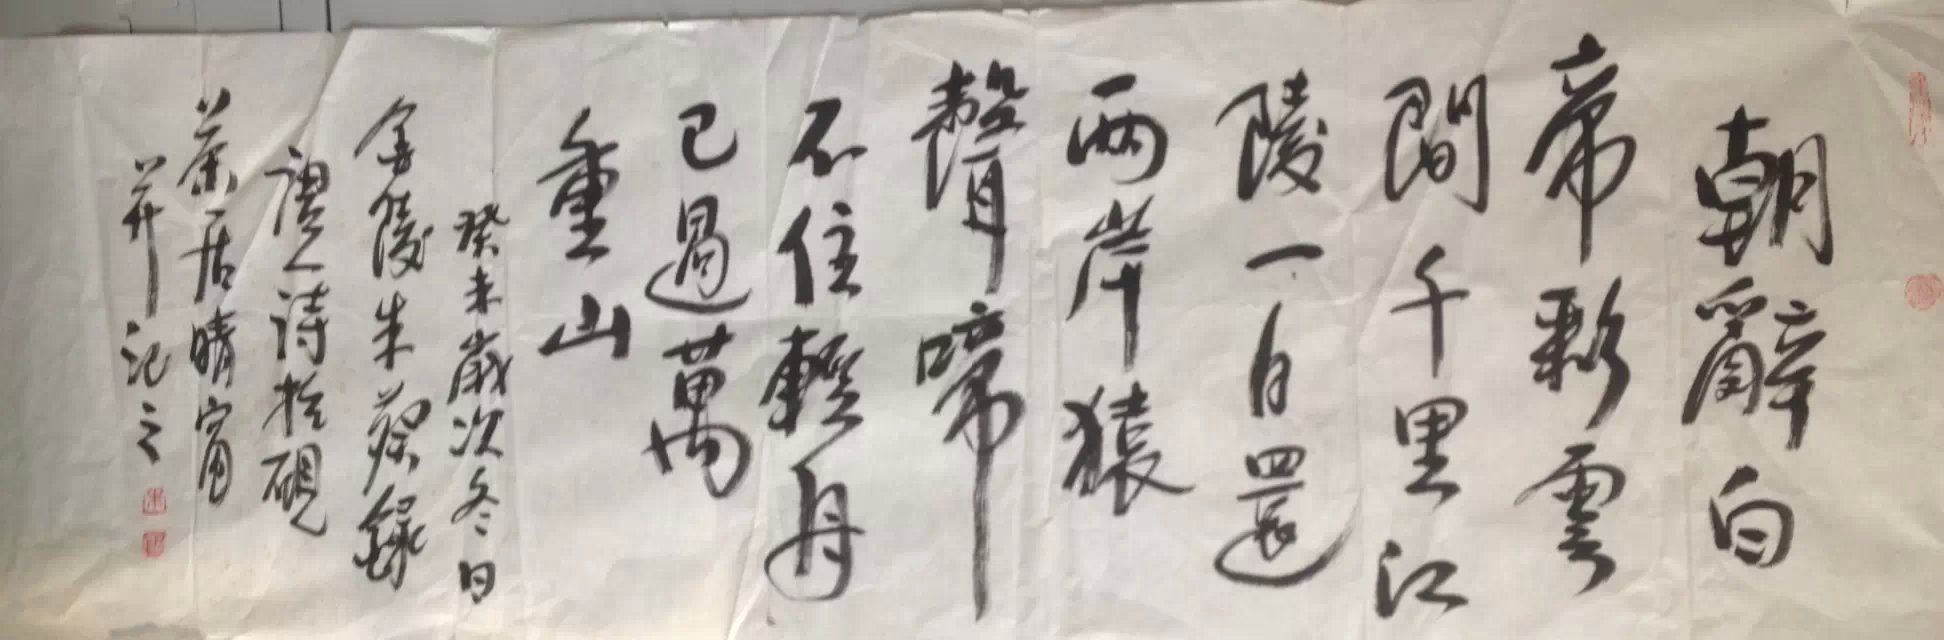 朝辭白
帝彩雲
間千里江
陵一日還
兩岸猿
聲啼
不住輕舟
已過萬
重山
癸未歲次冬日
金陵朱葵錄
唐人詩於硯
茶居晴窗
并記之